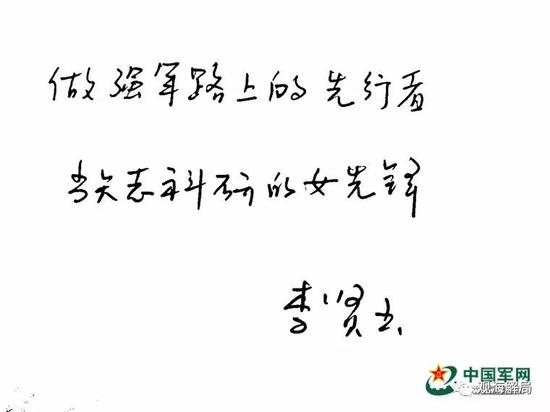 做强军路上的先行者
当矢志科研的女先锋
李贤玉
中国军网
观海解局